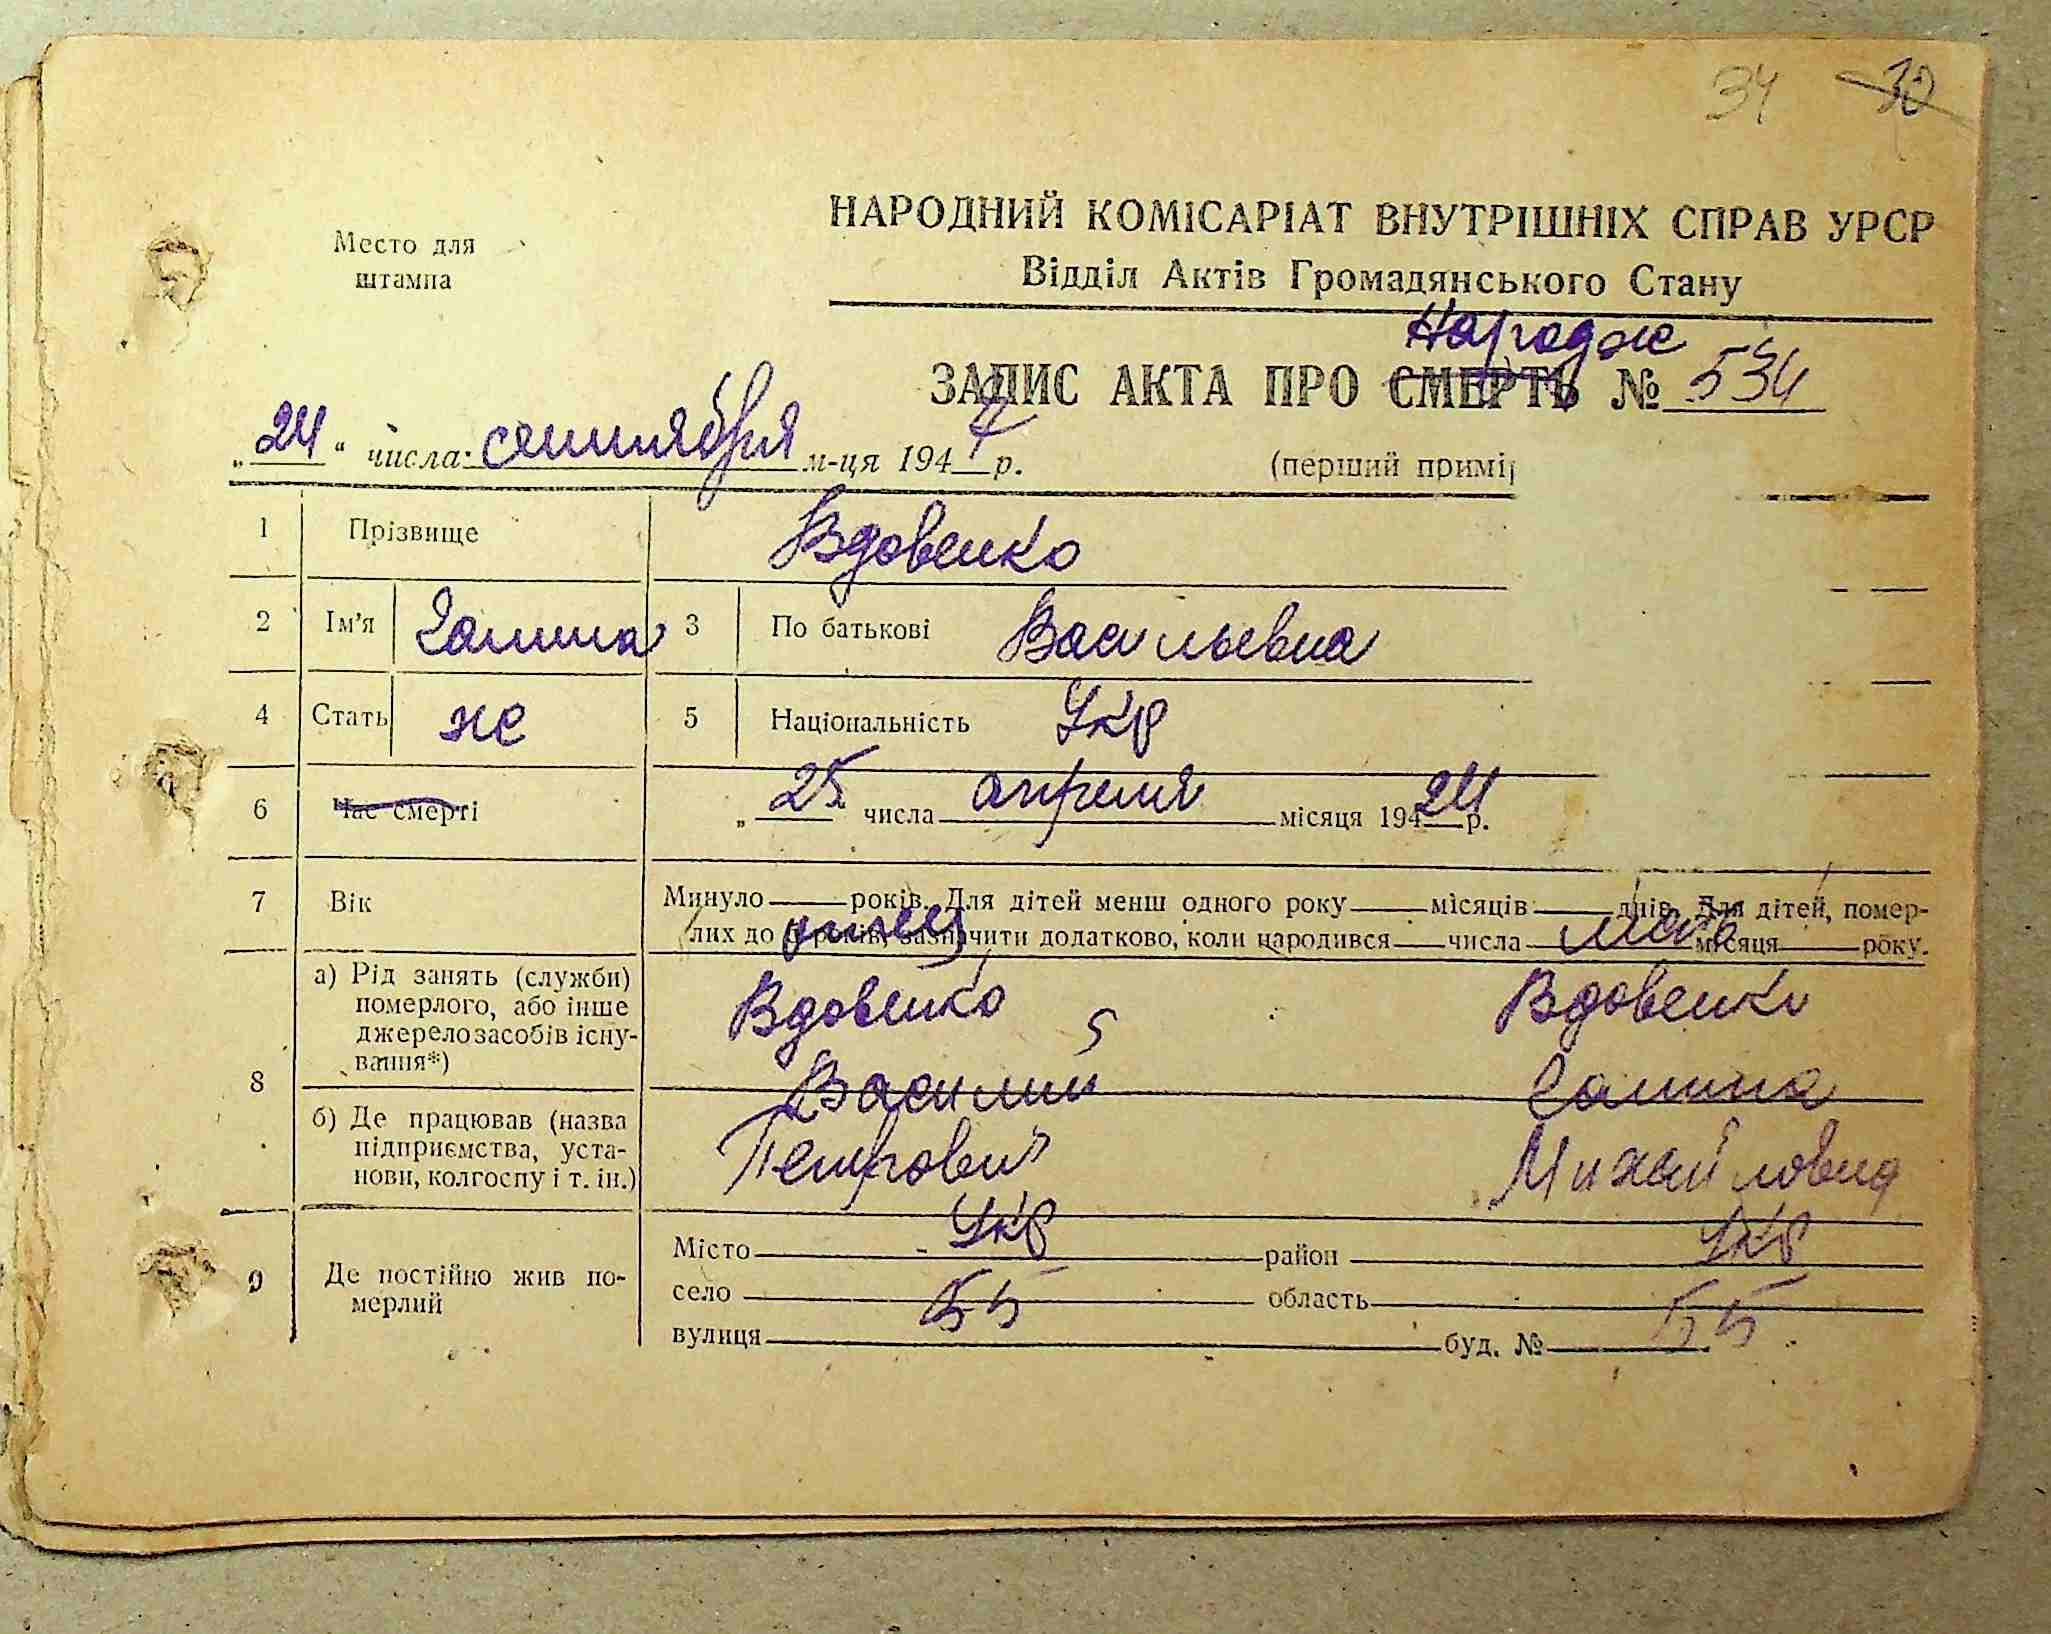 34 30
Место для
штампа
НАРОДНИЙ КОМІСАРІАТ ВНУТРІШНІХ СПРАВ УРСР
Відділ Актів Громадянського Стану
Народж
ЗАПИС АКТА ПРО СМЕРТЬ № 534
„24“ числа: сентября м-ця 1944 р. (перший примі
1 Прізвище Вдовенко
2 Ім'я Галина 3 По батькові Васильевна
4 Стать ж 5 Національність Укр
6 Час смерті „25 числа апреля місяця 194 24 р.
7 Вік Минуло років. Для дітей менш одного року місяців днів. Для дітей, помер-
лих до 1 років, зазначити додатково, коли народився числа місяця року.
отец мать
8 а) Рід занять (служби)
померлого, або інше
джерело засобів існу-
вання*)
Вдовенко Вдовенко
Василий Галина
б) Де працював (назва
підприємства, уста-
нови, колгоспу і т. ін.)
Петрович Михайловна
9 Де постійно жив по-
мерлий
Місто Укр район Укр
село 55 область 55
вулиця буд. №